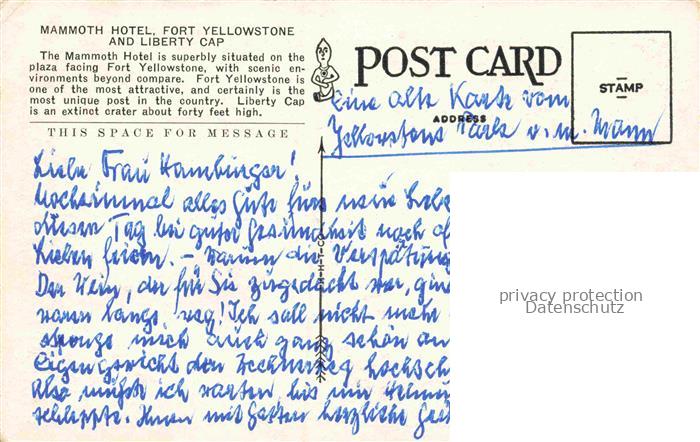 MAMMOTH HOTEL, FORT YELLOWSTONE
AND LIBERTY CAP
The Mammoth Hotel is superbly situated on the
plaza facing Fort Yellowstone, with scenic en-
vironments beyond compare. Fort Yellowstone is
one of the most attractive, and certainly is the
most unique post in the country. Liberty Cap
is an extinct crater about forty feet high.
THIS SPACE FOR MESSAGE
POST CARD
STAMP
ADDRESS
Eine alte Karte vom
Yellowstone Park v. m. Mann
Liebe Frau Hamburger!
Nocheinmal alles Gute fürs neue
diesen Tag bei guter Gesundheit noch
Lieben feiern. - Warum die Verspätung
Der Wein, der für Sie zugedacht war, ging
waren längst weg! Ich soll nicht mehr
mich auch ganz schön an
Eigengewicht den hoch
Also mußte ich warten bis mir
schleppte. Ihnen mit herzliche
privacy protection
Datenschutz